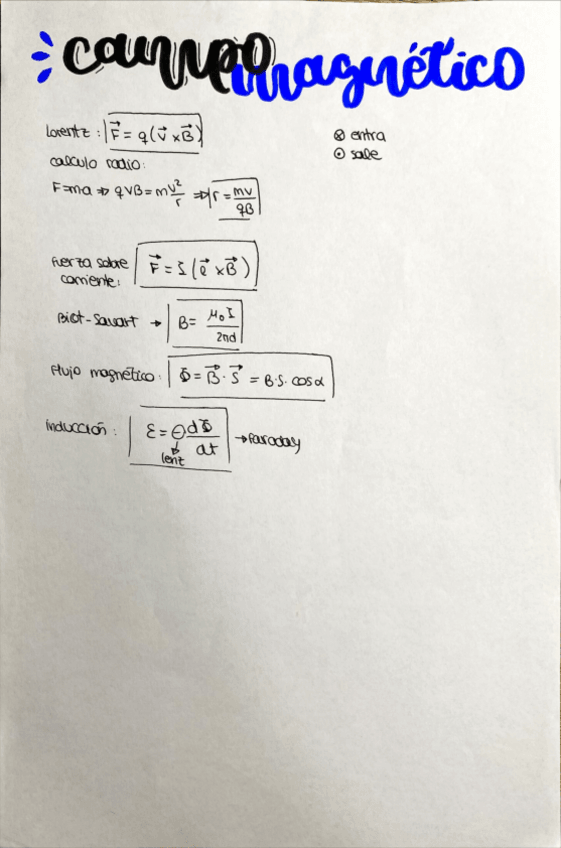 campo magnético
Lorentz: F⃗ = q(v⃗ x B⃗)
⊗ entra
⊙ sale
calculo radio:
F=ma ⇒ qvB = m v²/r ⇒ r = mv/qB
Fuerza sobre
corriente: F⃗ = I (ℓ⃗ x B⃗)
Biot-Savart → B = μ₀I/2πd
Flujo magnético: Φ = B⃗ · S⃗ = B·S·cosα
inducción: ε = - dΦ/dt → Faraday
lenz